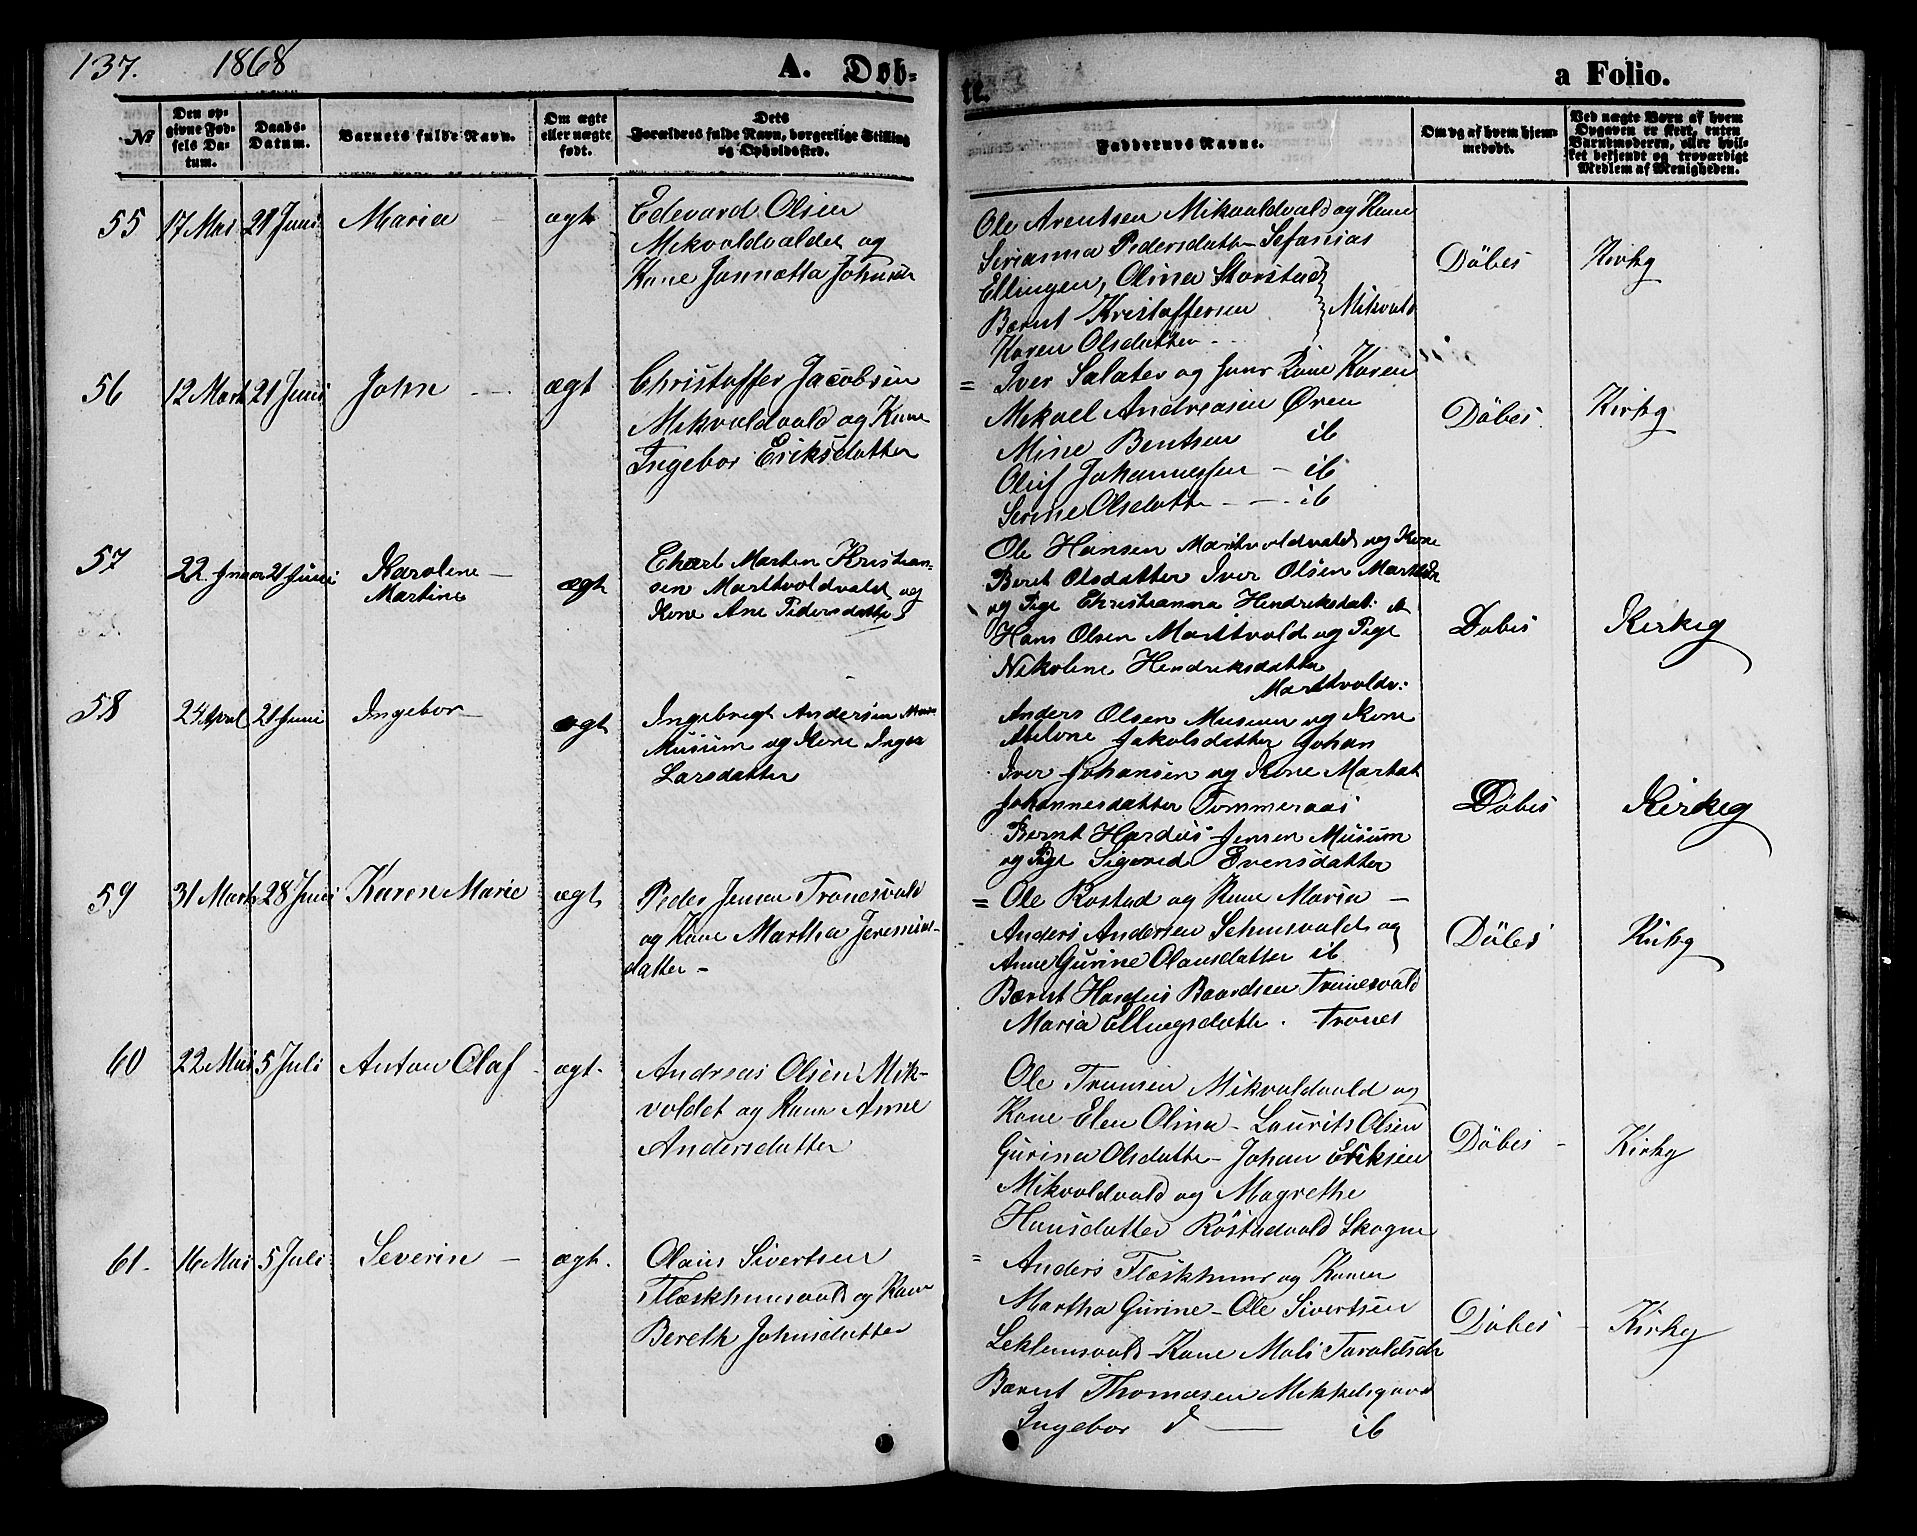 137. 1868 A. Døb-
te. a Folio.
№
Den op-
givne Fød-
sels Da-
tum.
Daabs-
Datum.
Barnets fulde Navn.
Om ægte
eller uægte
født.
Dets
Forældres fulde Navn, borgerlige Stilling
og Opholdssted.
Faddernes Navne.
Om og af hvem hjem-
medøbt.
Ved uægte Børn af hvem
Opgaven er skeet, enten
Barnemoderen, eller hvil-
ket bekjendt og troværdigt
Medlem af Menigheden.
55 17 Mai 21 Juni Maria - ægt
Edevard Olsen
Mikvoldvaldet og
Kone Jannetta Johnsd
Ole Arentsen Mikvoldvald og Kone
Sirianna Pedersdatt - Sefanias
Ellingen, Olina Storstad
Bernt Kristoffersen } Mikvold
Karen Olsdatter
Döbes Kirkg
56 12 Mart 21 Juni John - ægt
Christoffer Jacobsen
Mikvoldvald og Kone
Ingebor Eriksdatter
= Iver Salater og hans Kone Karen
Mikael Andreasen Øren
Mine Bentsen ib
Oluf Johannessen - ib
Serine Olsdatte - ib
Döbes Kirkg
57 22 Januar 21 Juni Karolene - ægt
Martine
Ehart Marten Kristian-
sen Marttvoldvald og
Kone Ane Pedersdatter
Ole Hansen Marttvoldvald og Kone
Beret Olsdatter Iver Olsen
og Pige Christianna Hendriksdat:
Hans Olsen Marttvold og Pige
Nikoline Hendriksdatter
Marttvoldv:
Döbes Kirkeg
58 24 April 21 Juni Ingebor - ægt
Ingebrigt Andersen
Musum og Kone Inger
Larsdatter
Anders Olsen Musum og Kone
Abelone Jakobsdatter Johan
Iver Johansen og Kone Martat
Johannesdatter Tommeraas
Bernt Hardus Jensen Musum
og Pige Sigerid Evensdatter
Döbes Kirkeg
59 31 Marts 28 Juni Karen Marie ægt
Peder Jensen Tronesvald
og Kone Martha Jeremias-
datter -
= Ole Rostad og Kone Maria -
Anders Andersen og
Anne Gurine Olausdatter ib
Bernt Hardus Baardsen Tronesvald
Maria Ellingsdatte. Trones
Döbes Kirkg
60 22 Mai 5 Juli Anton Olaf - ægt.
Andreas Olsen Mik-
voldet og Kone Anne
Andersdatter
Ole Mikvoldvald og
Kone Elen Olina - Laurits Olsen
Gurina Olsdatte - Johan Eriksen
Mikvoldvald og Magrethe
Hansdatter Röstadvald Skogne
Döbes - Kirkg
61. 16 Mai 5 Juli Severin - ægt.
Olaus Sivertsen
Flæskhusvald og Kone
Bereth Johnsdatter
= Anders Flæskhus og Konen
Martha Gurine - Ole Sivertsen
Leklemsvald - Kone Mali Taraldsdr
Bernt Thomasen Mikkelsgaard
Ingebor d - ib
Döbes - Kirkg